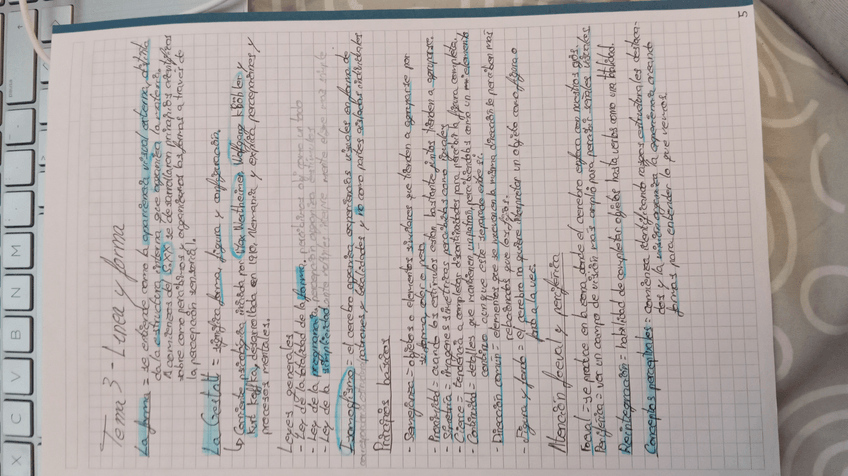 Tema 3 - Línea y forma
La forma = se entiende como la apariencia visual externa, distinta
de la estructura interna que organiza la materia.
A comienzos del S.XX se desarrollaron principios científicos
sobre como percibimos y organizamos las formas a través de
la percepción sensorial.
La Gestalt = significa forma, figura y configuración.
↳ Corriente psicológica iniciada por Max Wertheimer, Wolfgang Köhler y
Kurt Koffka, desarrollada en 1910, Alemania y explica percepciones y
procesos mentales.
Leyes generales
- Ley de la totalidad de la forma. percibimos como un todo
- Ley de la pregnancia
- Ley de la simplicidad
Isomorfismo = el cerebro organiza experiencias visuales en forma de
patrones y totalidades y no como partes aisladas individuales
Principios básicos
- Semejanza = objetos o elementos similares que tienden a agruparse por
su forma, color o peso.
- Proximidad = cuando los estímulos están bastante juntos tienden a agruparse.
- Simetría = imágenes simétricas percibidas como iguales
- Cierre = tendencia a completar discontinuidades para percibir la figura completa.
- Continuidad = detalles que mantienen un patrón, percibiéndolos como un elemento
continuo aunque esté separado entre sí.
- Dirección común = elementos que se mueven en la misma dirección lo perciben más
relacionados que los fijos.
- Figura y fondo = el cerebro no puede interpretar un objeto como figura o
fondo a la vez.
Atención focal y periférica
Focal = se produce en la zona donde el cerebro enfoca con nuestros ojos.
Periférica = usar un campo de visión más amplio para percibir señales visuales.
Reintegración = habilidad de completar objetos hasta verlos como una totalidad.
Conceptos perceptuales = comienza identificando rasgos estructurales destaca-
dos y la visión organiza la experiencia creando
formas para entender lo que vemos.
5
X
C
V
B
N
M